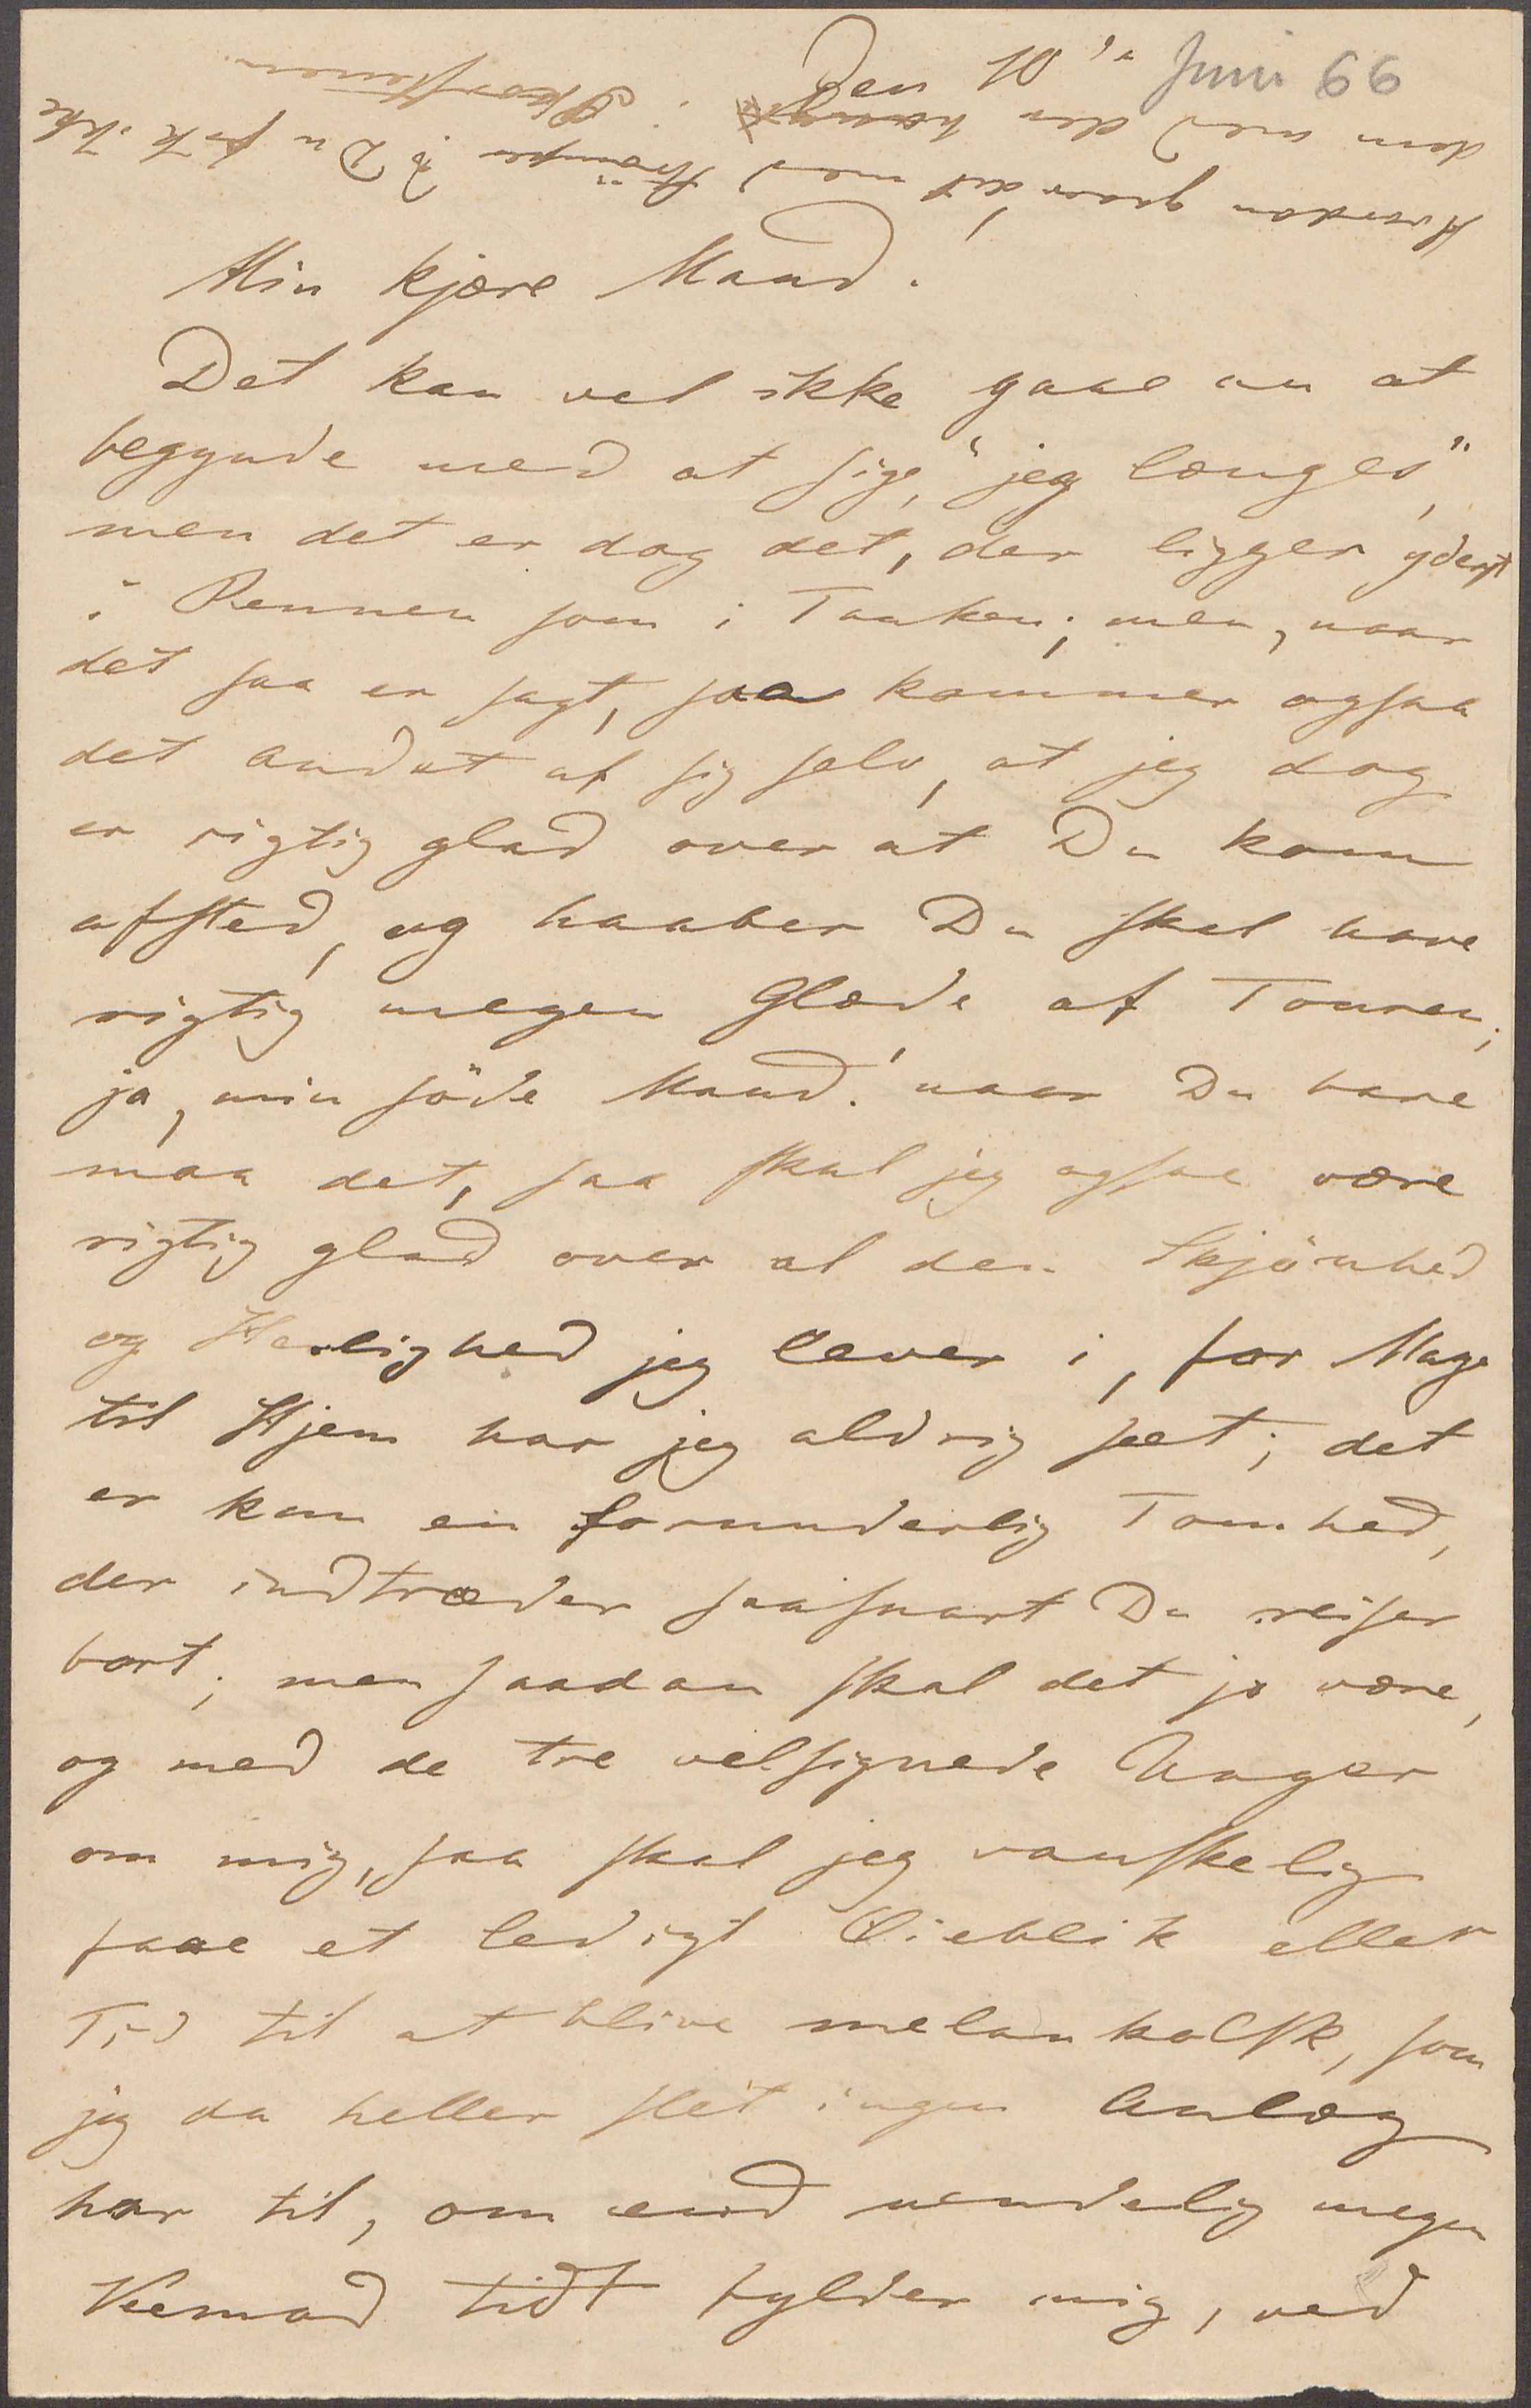 Den 10" Juni 66
Hvordan gaaer det med Strömper? Du fik ikke
dem med der hang i
Skorstenen.
Min kjære Mand!
Det kan vel ikke gaae an at
begynde med at sige, "jeg længes",
men det er dog det, der ligger yderst
i Pennen som i Tanken; men, naar
det saa er sagt, saa kommer ogsaa
det andet af sig selv, at jeg dog
er rigtig glad over at Du kom
afsted, og haaber Du skal have
rigtig megen Glæde af Touren;
ja, min söde Mand! naar Du bare
maa det, saa skal jeg ogsaa være
rigtig glad over al den Skjönhed
og Herlighed jeg lever i, for Mage
til Hjem har jeg aldrig seet; det
er kun en forunderlig Tomhed,
der indtræder saasnart Du reiser
bort; men saadan skal det jo være,
og med de tre velsignede Unger
om mig, saa skal jeg vanskelig
faae et ledigt Öieblik eller
Tid til at blive melankolsk, som
jeg da heller slet ingen Anlæg
har til, om end uendelig megen
Veemod tidt fylder mig, ved